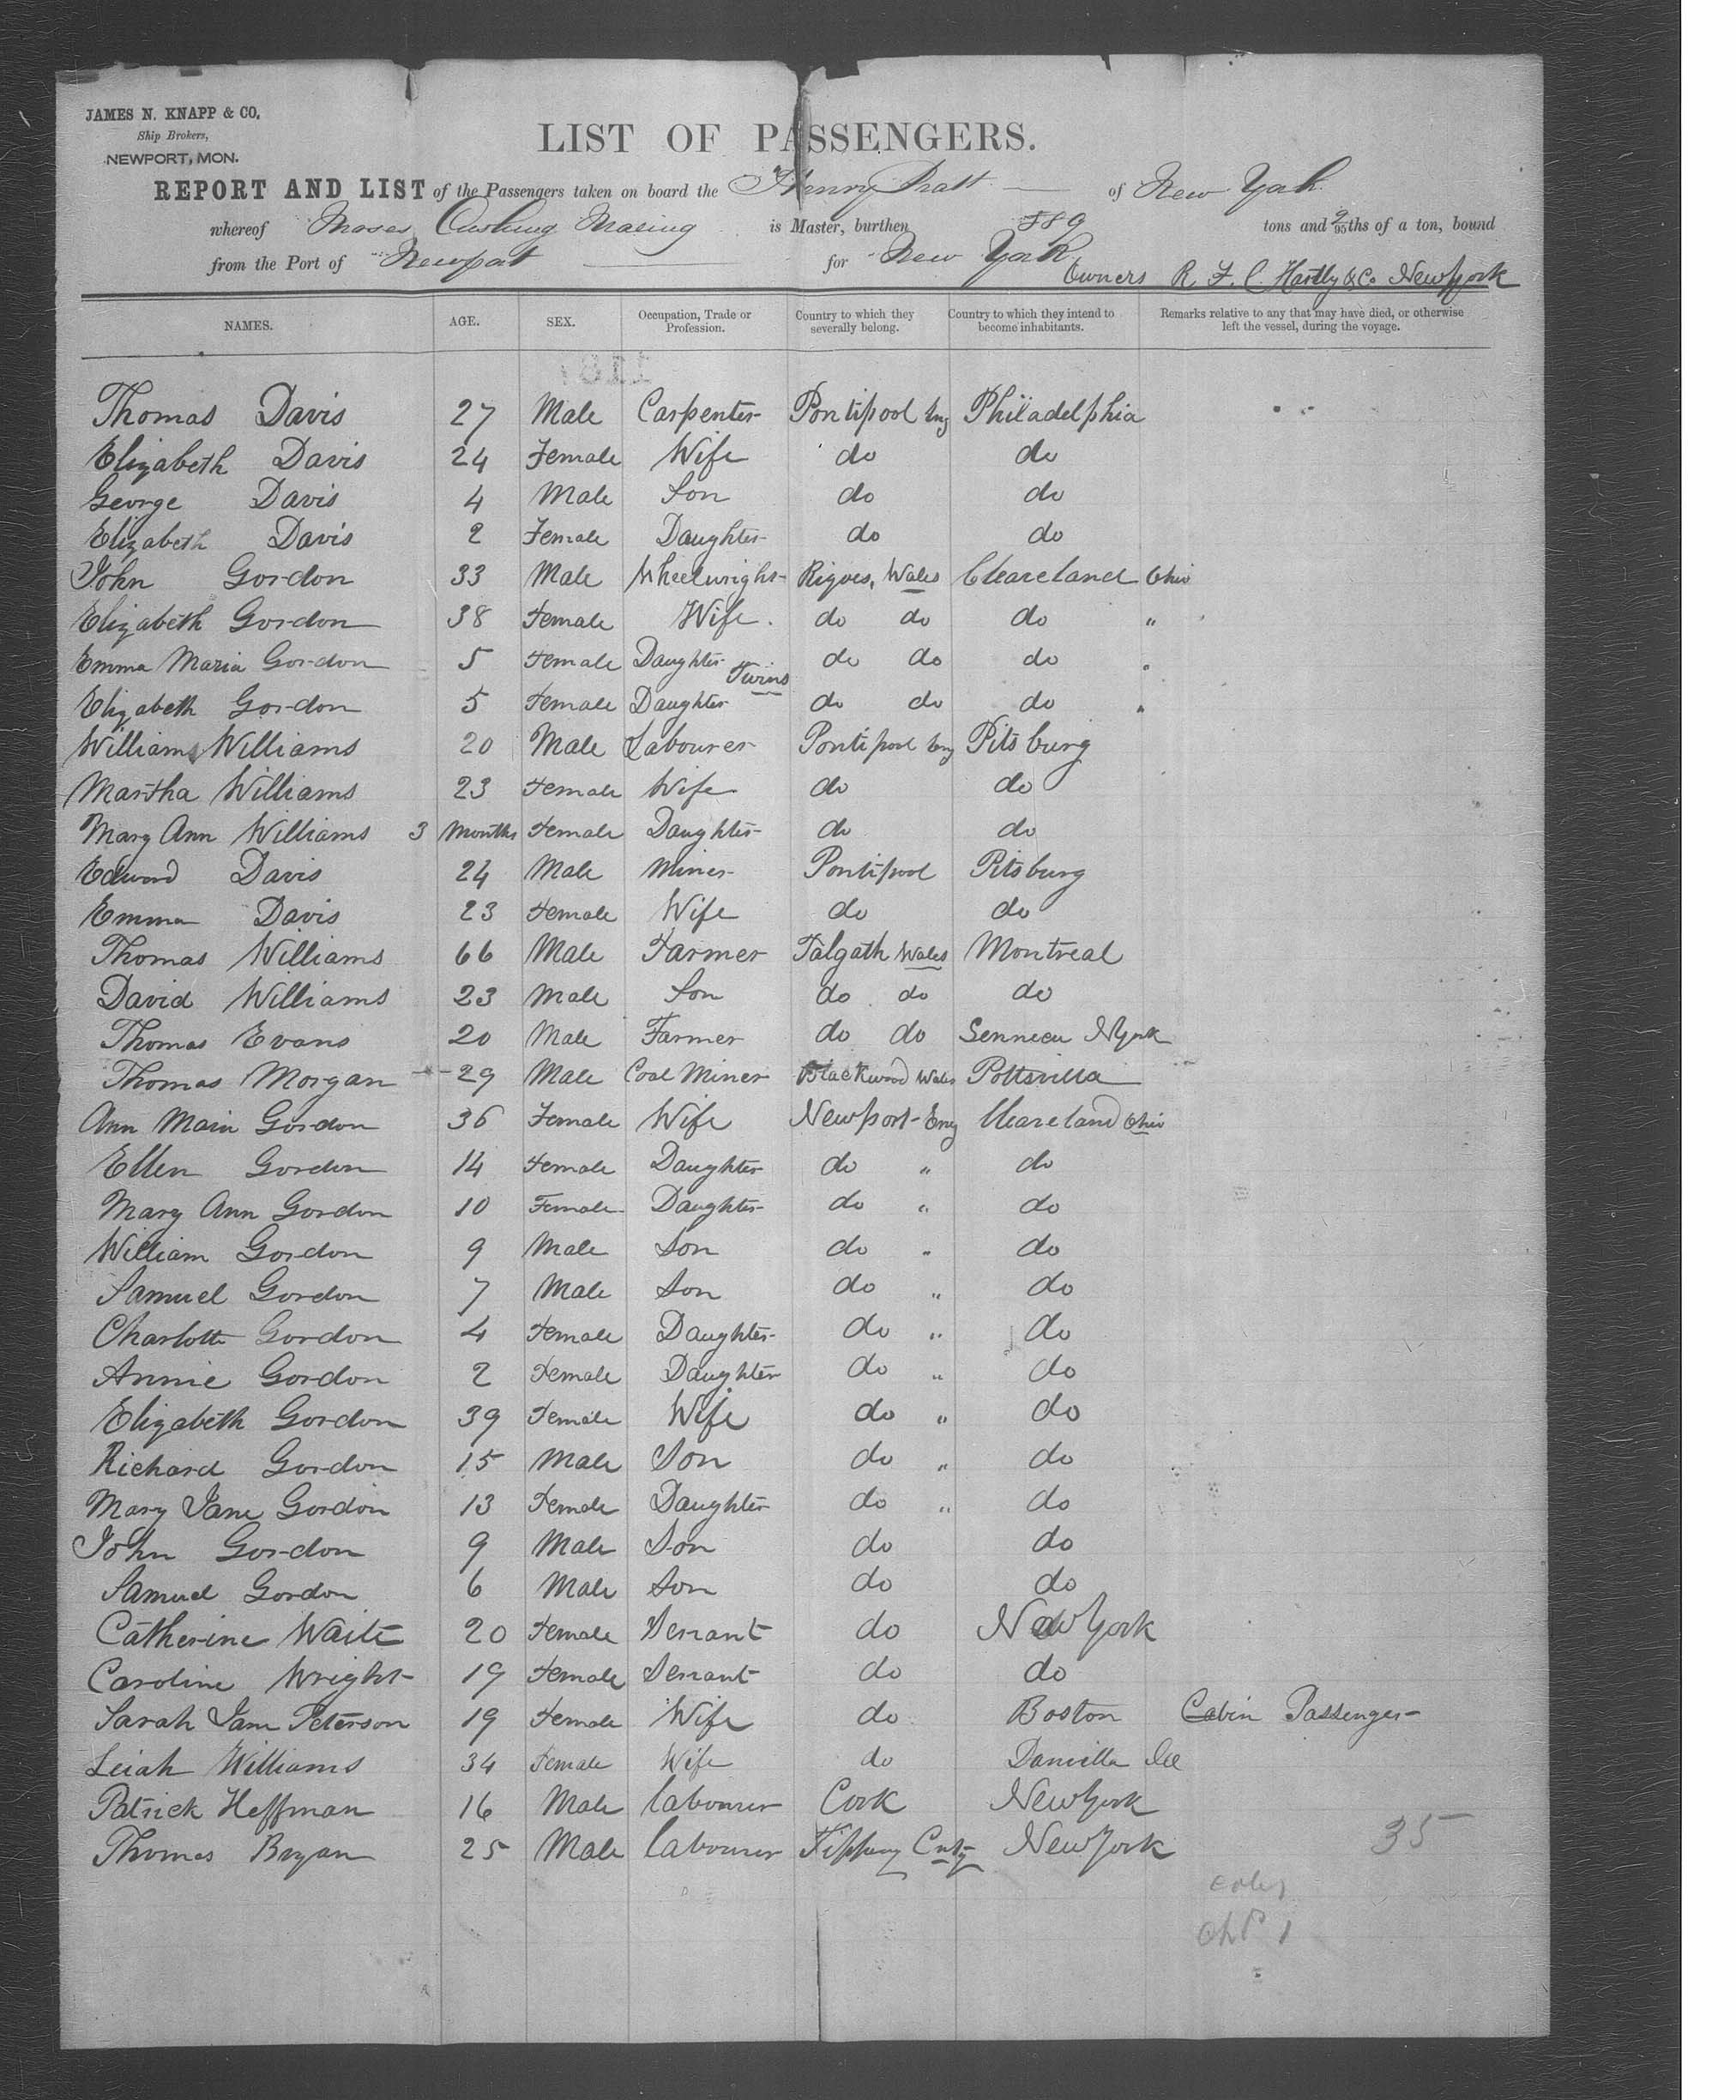 JAMES N. KNAPP & CO.
Ship Brokers,
NEWPORT, MON.
LIST OF PASSENGERS.
REPORT AND LIST of the Passengers taken on board the Henry Pratt of New York
whereof Moses Cushing is Master, burthen 589 tons and 9/95ths of a ton, bound
from the Port of Newport for New York
Owners R. F. C. Hartley & Co New York
NAMES. AGE. SEX. Occupation, Trade or Profession. Country to which they severally belong. Country to which they intend to become inhabitants. Remarks relative to any that may have died, or otherwise left the vessel, during the voyage.
Thomas Davis 27 Male Carpenter Pontipool Eng Philadelphia
Elizabeth Davis 24 Female Wife do do
George Davis 4 Male Son do do
Elizabeth Davis 2 Female Daughter do do
John Gordon 33 Male Wheelwright Wales Cleaveland Ohio
Elizabeth Gordon 38 Female Wife. do do do "
Emma Maria Gordon 5 Female Daughter Twins do do do "
Elizabeth Gordon 5 Female Daughter do do do "
William Williams 20 Male Labourer Pontipool Eng Pitsburg
Martha Williams 23 Female Wife do do
Mary Ann Williams 3 Months Female Daughter do do
Edward Davis 24 Male Miner Pontipool Pitsburg
Emma Davis 23 Female Wife do do
Thomas Williams 66 Male Farmer Talgath Wales Montreal
David Williams 23 Male Son do do do
Thomas Evans 20 Male Farmer do do Senneca NYork
Thomas Morgan 29 Male Coal Miner Blackwood Wales Pottsvilla
Ann Maria Gordon 36 Female Wife Newport Eng Cleaveland Ohio
Ellen Gordon 14 Female Daughter do " do
Mary Ann Gordon 10 Female Daughter do " do
William Gordon 9 Male Son do " do
Samuel Gordon 7 Male Son do " do
Charlotte Gordon 4 Female Daughter do " do
Annie Gordon 2 Female Daughter do " do
Elizabeth Gordon 39 Female Wife do " do
Richard Gordon 15 Male Son do " do
Mary Jane Gordon 13 Female Daughter do " do
John Gordon 9 Male Son do do
Samuel Gordon 6 Male Son do do
Catherine Waite 20 Female Servant do New York
Caroline Wright 19 Female Servant do do
Sarah Jane Peterson 19 Female Wife do Boston Cabin Passenger
Leiah Williams 34 Female Wife do Danvilla Ill
Patrick Heffman 16 Male labourer Cork New York
Thomas Bryan 25 Male labourer Tippary Cnty New York
35